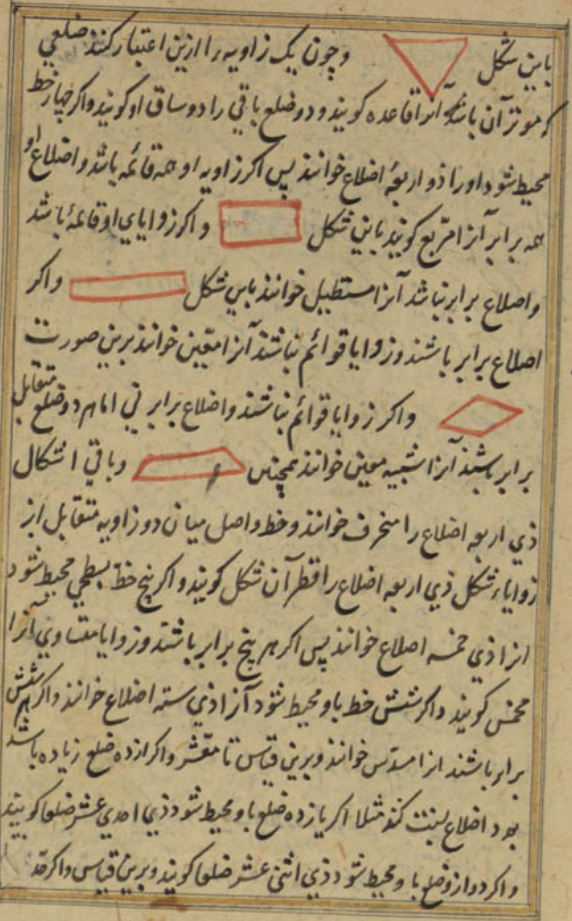 باین شکل وچون یک زاویه را ازین اعتبار کنند ضلعی
که موتر آن باشد آنرا قاعده کویند و دو ضلع باقی را دو ساق او کویند واکر چهار خط
محیط شود اورا ذو اربعهٔ اضلاع خوانند پس اکر زاویه او همه قائمه باشد واضلاع او
همه برابر آنرا مربع کویند باین شکل واکر زوایای او قائمهٔ باشد
واضلاع برابر نباشد آنرا مستطیل خوانند باین شکل واکر
اضلاع برابر باشند وزوایا قوائم نباشند آنرا معین خوانند برین صورت
واکر زوایا قوائم نباشند واضلاع برابر نی اما هر دو ضلع متقابل
برابر باشند آنرا شبیه معین خوانند همچنین وباقی اشکال
ذی اربعه اضلاع را منحرف خوانند وخط واصل میان دو زاویه متقابل از
زوایاء شکل ذی اربعه اضلاع را قطر آن شکل کویند واکر پنج خط بسطحی محیط شود
انرا ذی خمسه اضلاع خوانند پس اکر هر پنج برابر باشند وزوایا متساوی آنرا
مخمس کویند واکر شش خط باو محیط شود آنرا ذی سته اضلاع خوانند واکر هر شش
برابر باشند انرا مسدس خوانند وبرین قیاس تا معشر واکر از ده ضلع زیاده باشد
بعدد اضلاع نسبت کنند مثلا اکر یازده ضلع باو محیط شود ذی احدی عشر ضلعا کویند
واکر دوازده ضلع باو محیط شود ذی اثنی عشر ضلعا کویند وبرین قیاس واکر